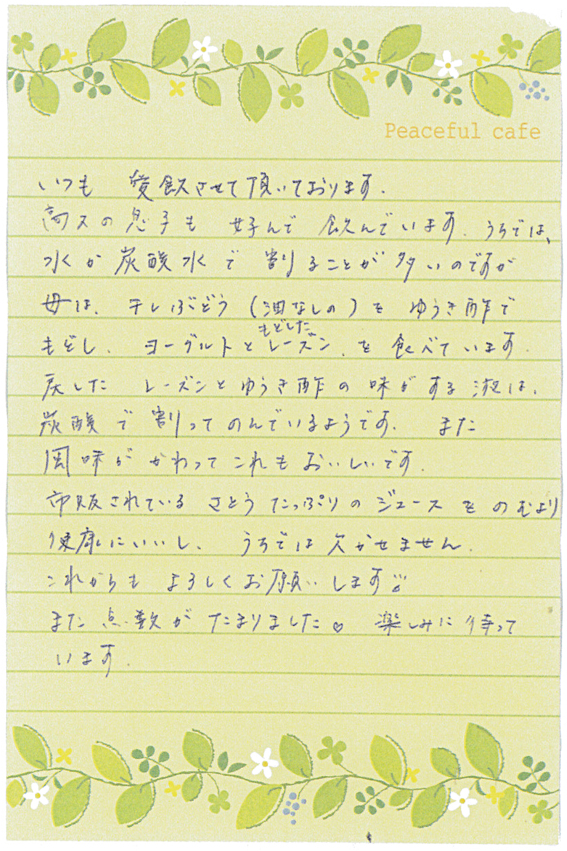 Peaceful cafe
いつも 愛飲させて頂いております。
高2の息子も 好んで 飲んでいます。うちでは、
水か炭酸水で 割ることが多いのですが
母は、干しぶどう(油なしの)を ゆうき酢で
もどした
もどし、ヨーグルトとレーズン、を食べています。
戻した レーズンとゆうき酢の味がする液は、
炭酸で割ってのんでいるようです。 また
風味が かわってこれもおいしいです。
市販されている さとうたっぷりのジュースをのむより
健康にいいし、 うちでは欠かせません。
これからも よろしくお願いします
また点数が たまりました♡ 楽しみに待って
います。